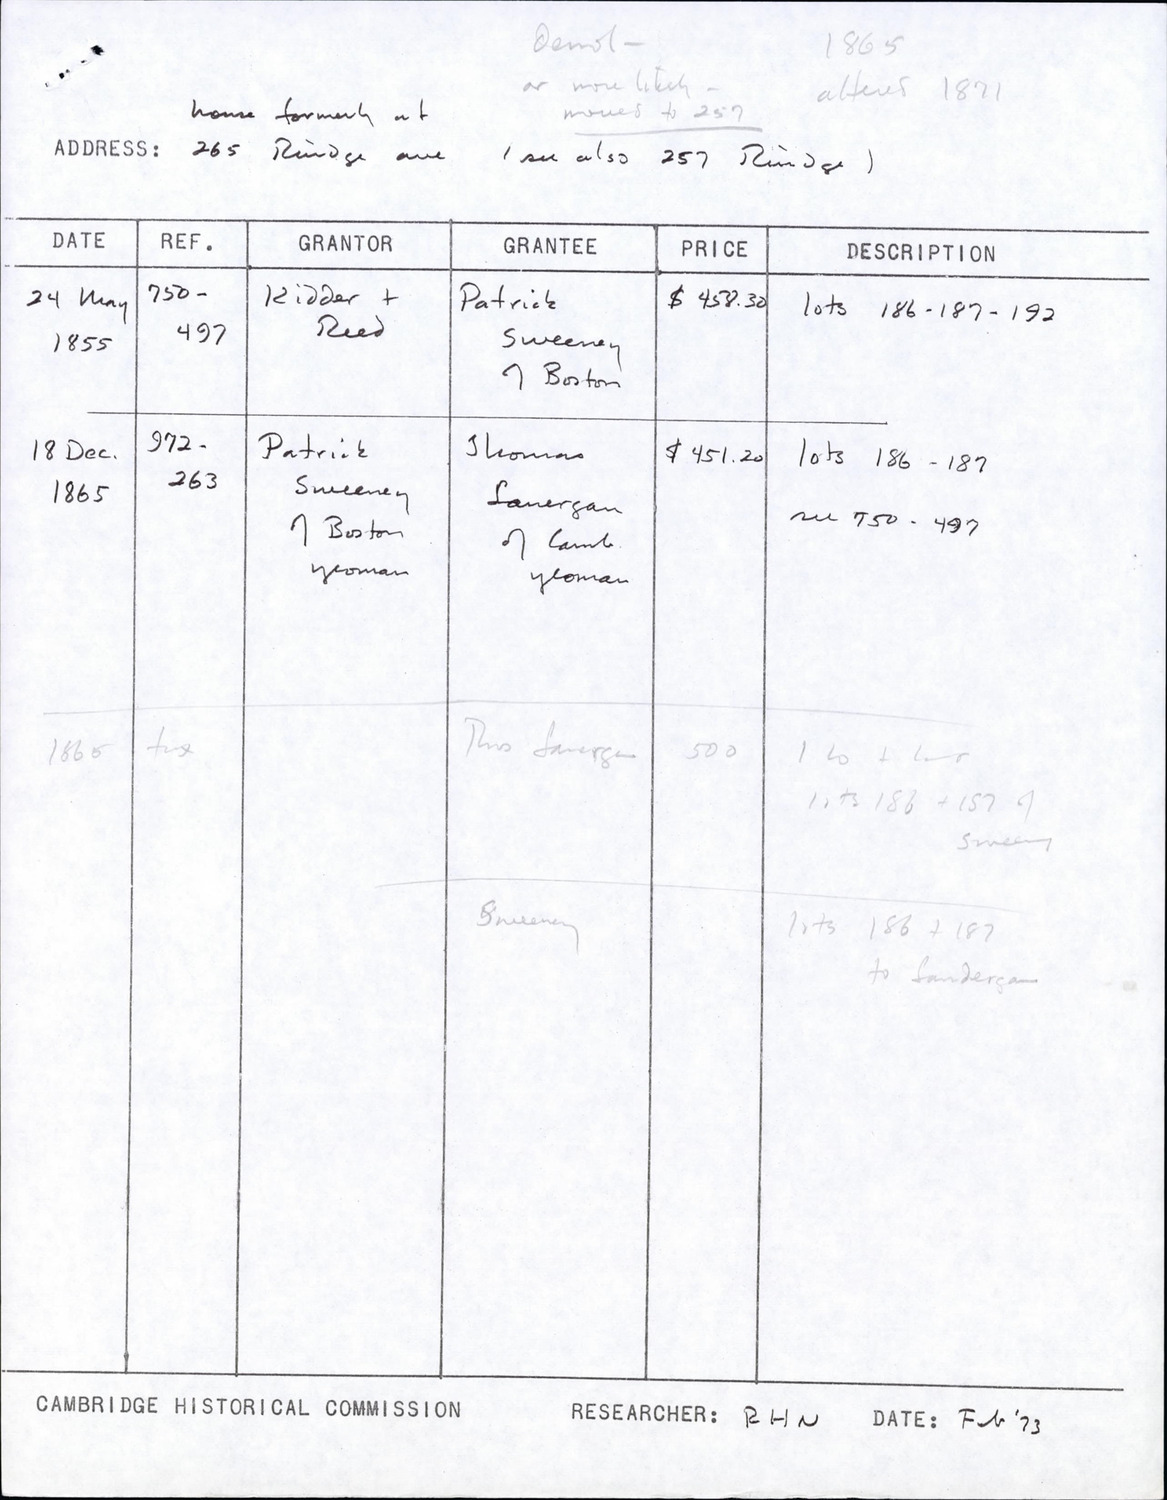 Demol - 1865
or more likely - altered 1871
moved to 257
house formerly at
ADDRESS: 265 Rindge ave (see also 257 Rindge)
DATE REF. GRANTOR GRANTEE PRICE DESCRIPTION
24 May 750- Kidder + Patrick $ 458.30 lots 186-187-192
1855 497 Reed Sweeney
of Boston
18 Dec. 972- Patrick Thomas $ 451.20 lots 186-187
1865 263 Sweeney Lanergan
of Boston of Camb. see 750-497
yeoman yeoman
1865 tax Thos Lanergan 500
lots 186 + 187 of
Sweeney
Sweeney lots 186 + 187
to Landergan
CAMBRIDGE HISTORICAL COMMISSION RESEARCHER: RHN DATE: Feb '73